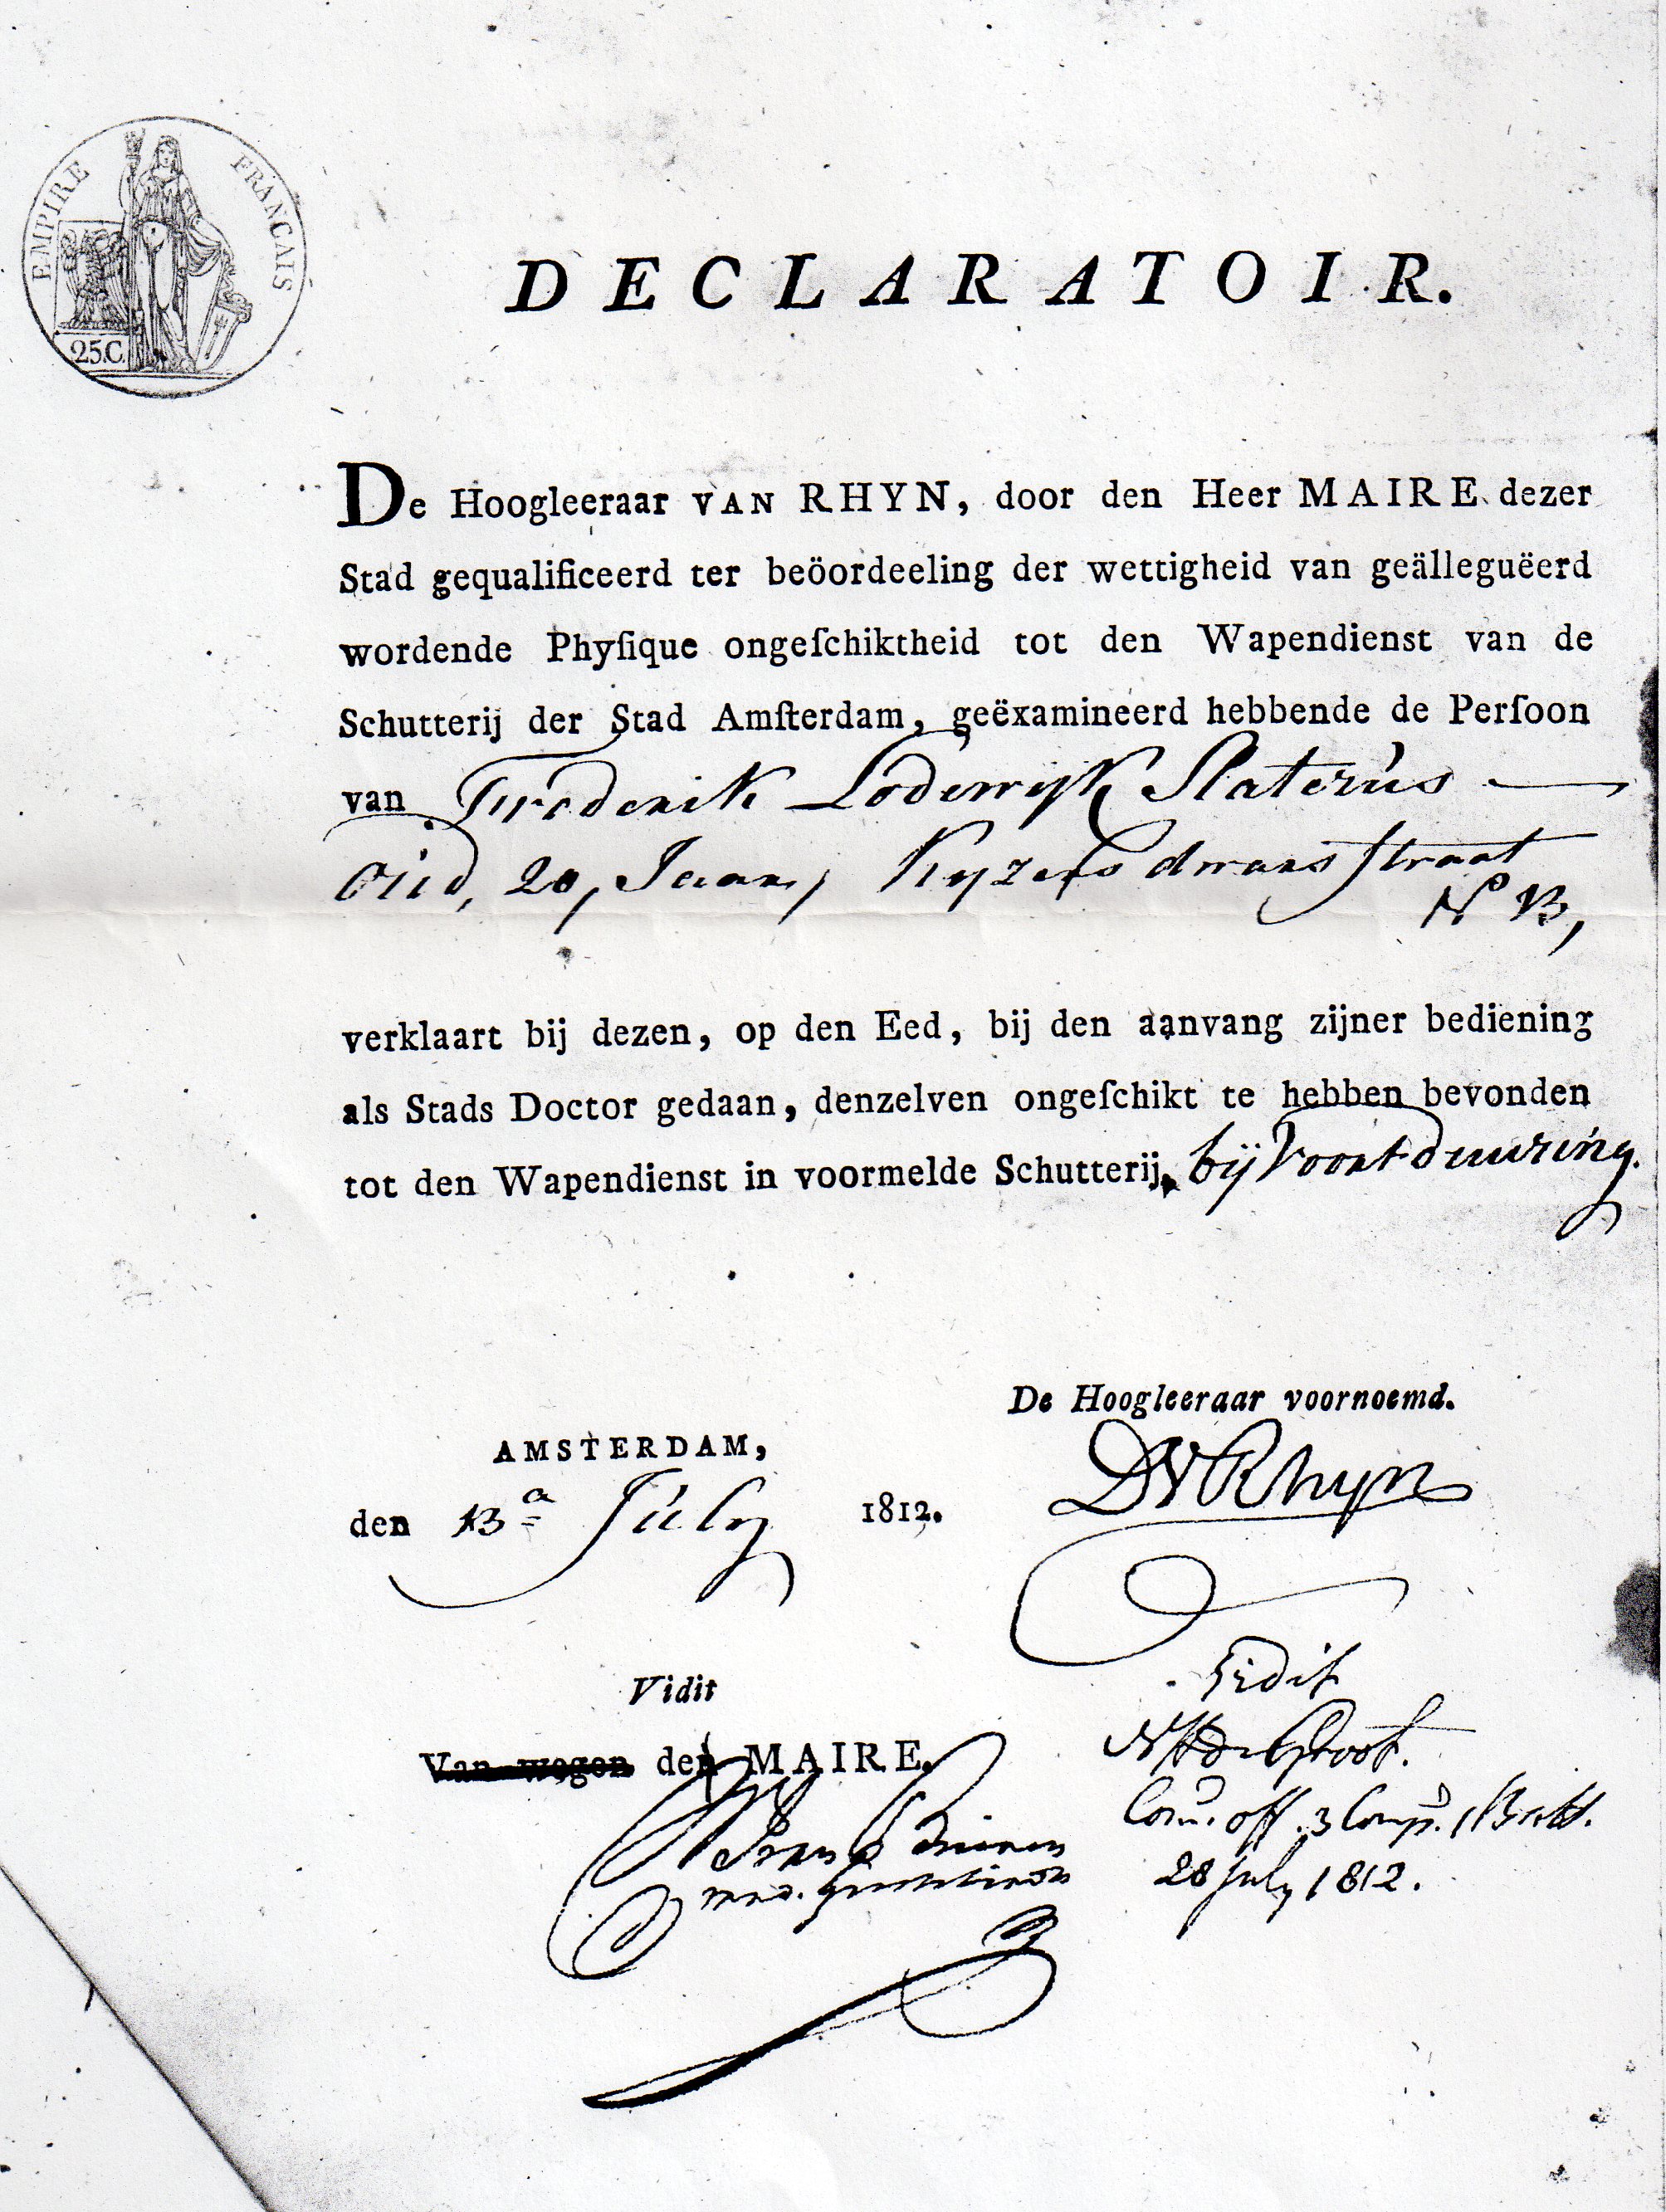 EMPIRE FRANCAIS
25.C.
DECLARATOIR.
De Hoogleeraar VAN RHYN, door den Heer MAIRE dezer
Stad gequalificeerd ter beöordeeling der wettigheid van geälleguëerd
wordende Phyſique ongeſchiktheid tot den Wapendienst van de
Schutterij der Stad Amſterdam, geëxamineerd hebbende de Perſoon
van Frederik Lodewijk Slaterus
Oud, 20, Jaar, Kyzers dwars straat
No 13,
verklaart bij dezen, op den Eed, bij den aanvang zijner bediening
als Stads Doctor gedaan, denzelven ongeſchikt te hebben bevonden
tot den Wapendienst in voormelde Schutterij, bij Voortduuring.
De Hoogleeraar voornoemd.
AMSTERDAM,
DVRhyn
den 13a July 1812.
Vidit
Vidit
Van wegen den MAIRE.
off. 3 Comp. 1 Batt.
28 July 1812.